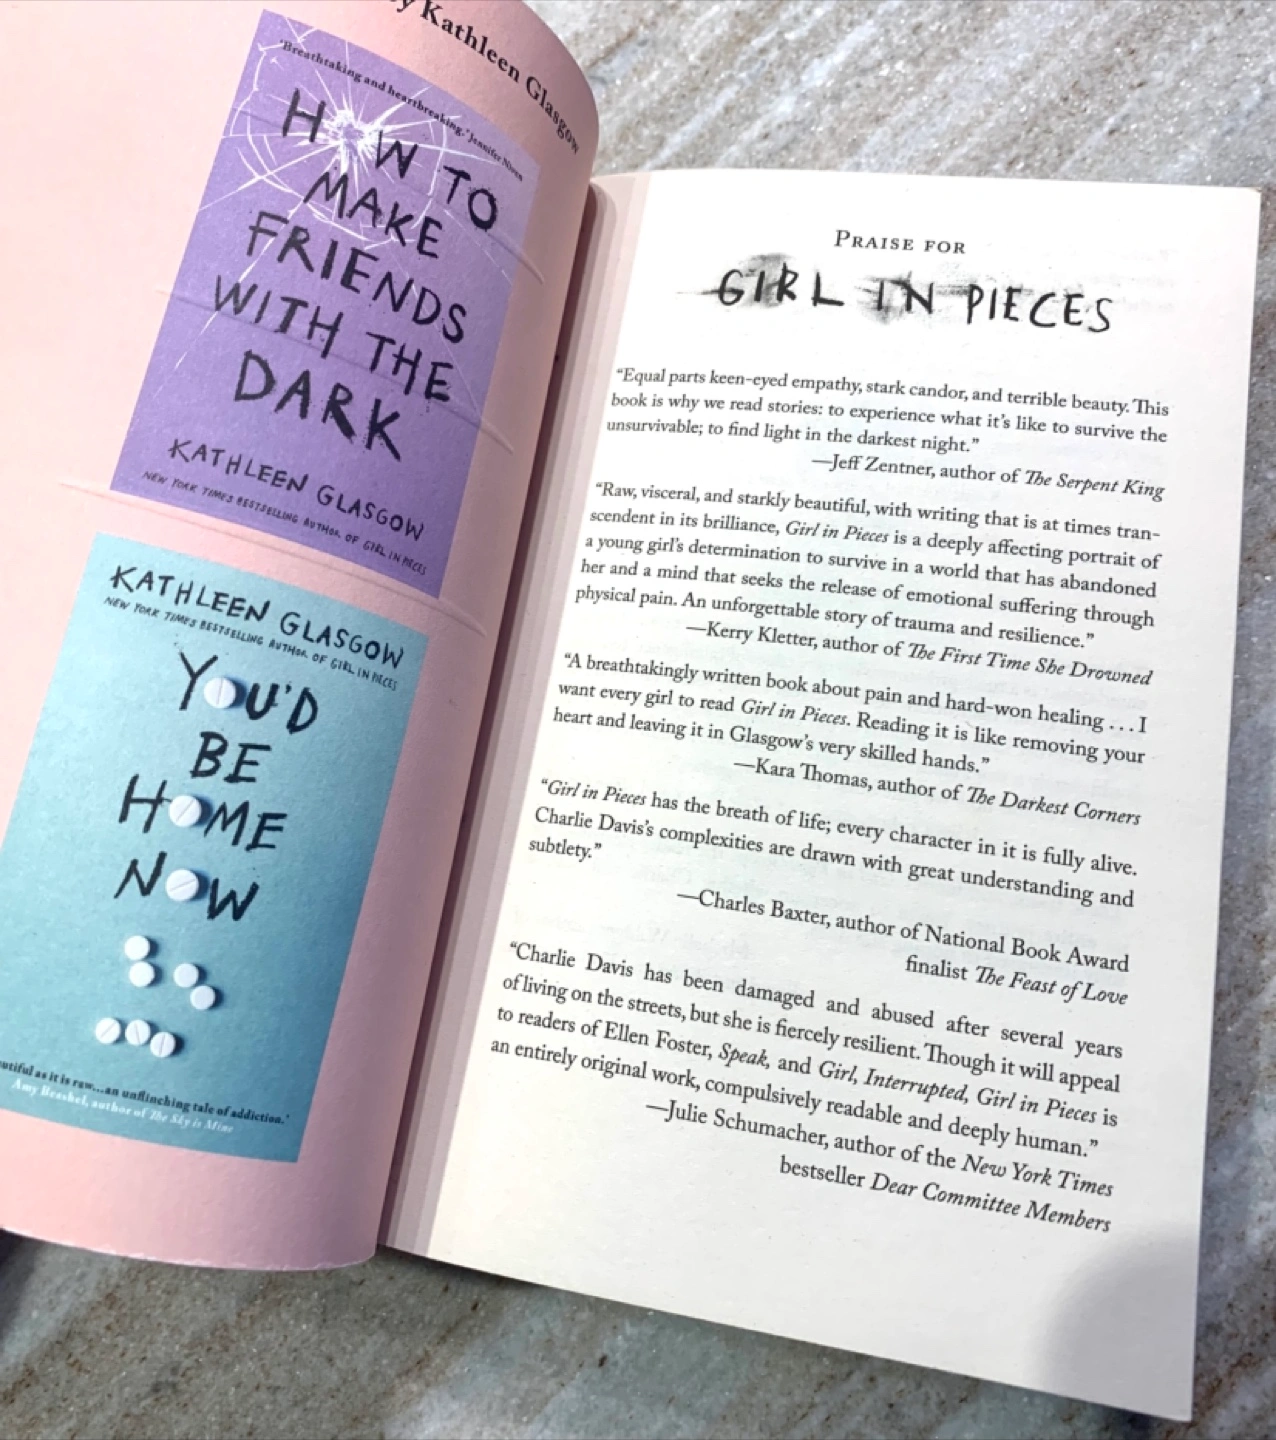 y Kathleen Glasgow
'Breathtaking and heartbreaking.' Jennifer Niven
HOW TO
MAKE
FRIENDS
WITH THE
DARK
KATHLEEN GLASGOW
NEW YORK TIMES BESTSELLING AUTHOR OF GIRL IN PIECES
KATHLEEN GLASGOW
NEW YORK TIMES BESTSELLING AUTHOR OF GIRL IN PIECES
YOU'D
BE
HOME
NOW
utiful as it is raw...an unflinching tale of addiction.'
Amy Beashel, author of The Sky is Mine
PRAISE FOR
GIRL IN PIECES
“Equal parts keen-eyed empathy, stark candor, and terrible beauty. This
book is why we read stories: to experience what it’s like to survive the
unsurvivable; to find light in the darkest night.”
—Jeff Zentner, author of The Serpent King
“Raw, visceral, and starkly beautiful, with writing that is at times tran-
scendent in its brilliance, Girl in Pieces is a deeply affecting portrait of
a young girl’s determination to survive in a world that has abandoned
her and a mind that seeks the release of emotional suffering through
physical pain. An unforgettable story of trauma and resilience.”
—Kerry Kletter, author of The First Time She Drowned
“A breathtakingly written book about pain and hard-won healing . . . I
want every girl to read Girl in Pieces. Reading it is like removing your
heart and leaving it in Glasgow’s very skilled hands.”
—Kara Thomas, author of The Darkest Corners
“Girl in Pieces has the breath of life; every character in it is fully alive.
Charlie Davis’s complexities are drawn with great understanding and
subtlety.”
—Charles Baxter, author of National Book Award
finalist The Feast of Love
“Charlie Davis has been damaged and abused after several years
of living on the streets, but she is fiercely resilient. Though it will appeal
to readers of Ellen Foster, Speak, and Girl, Interrupted, Girl in Pieces is
an entirely original work, compulsively readable and deeply human.”
—Julie Schumacher, author of the New York Times
bestseller Dear Committee Members